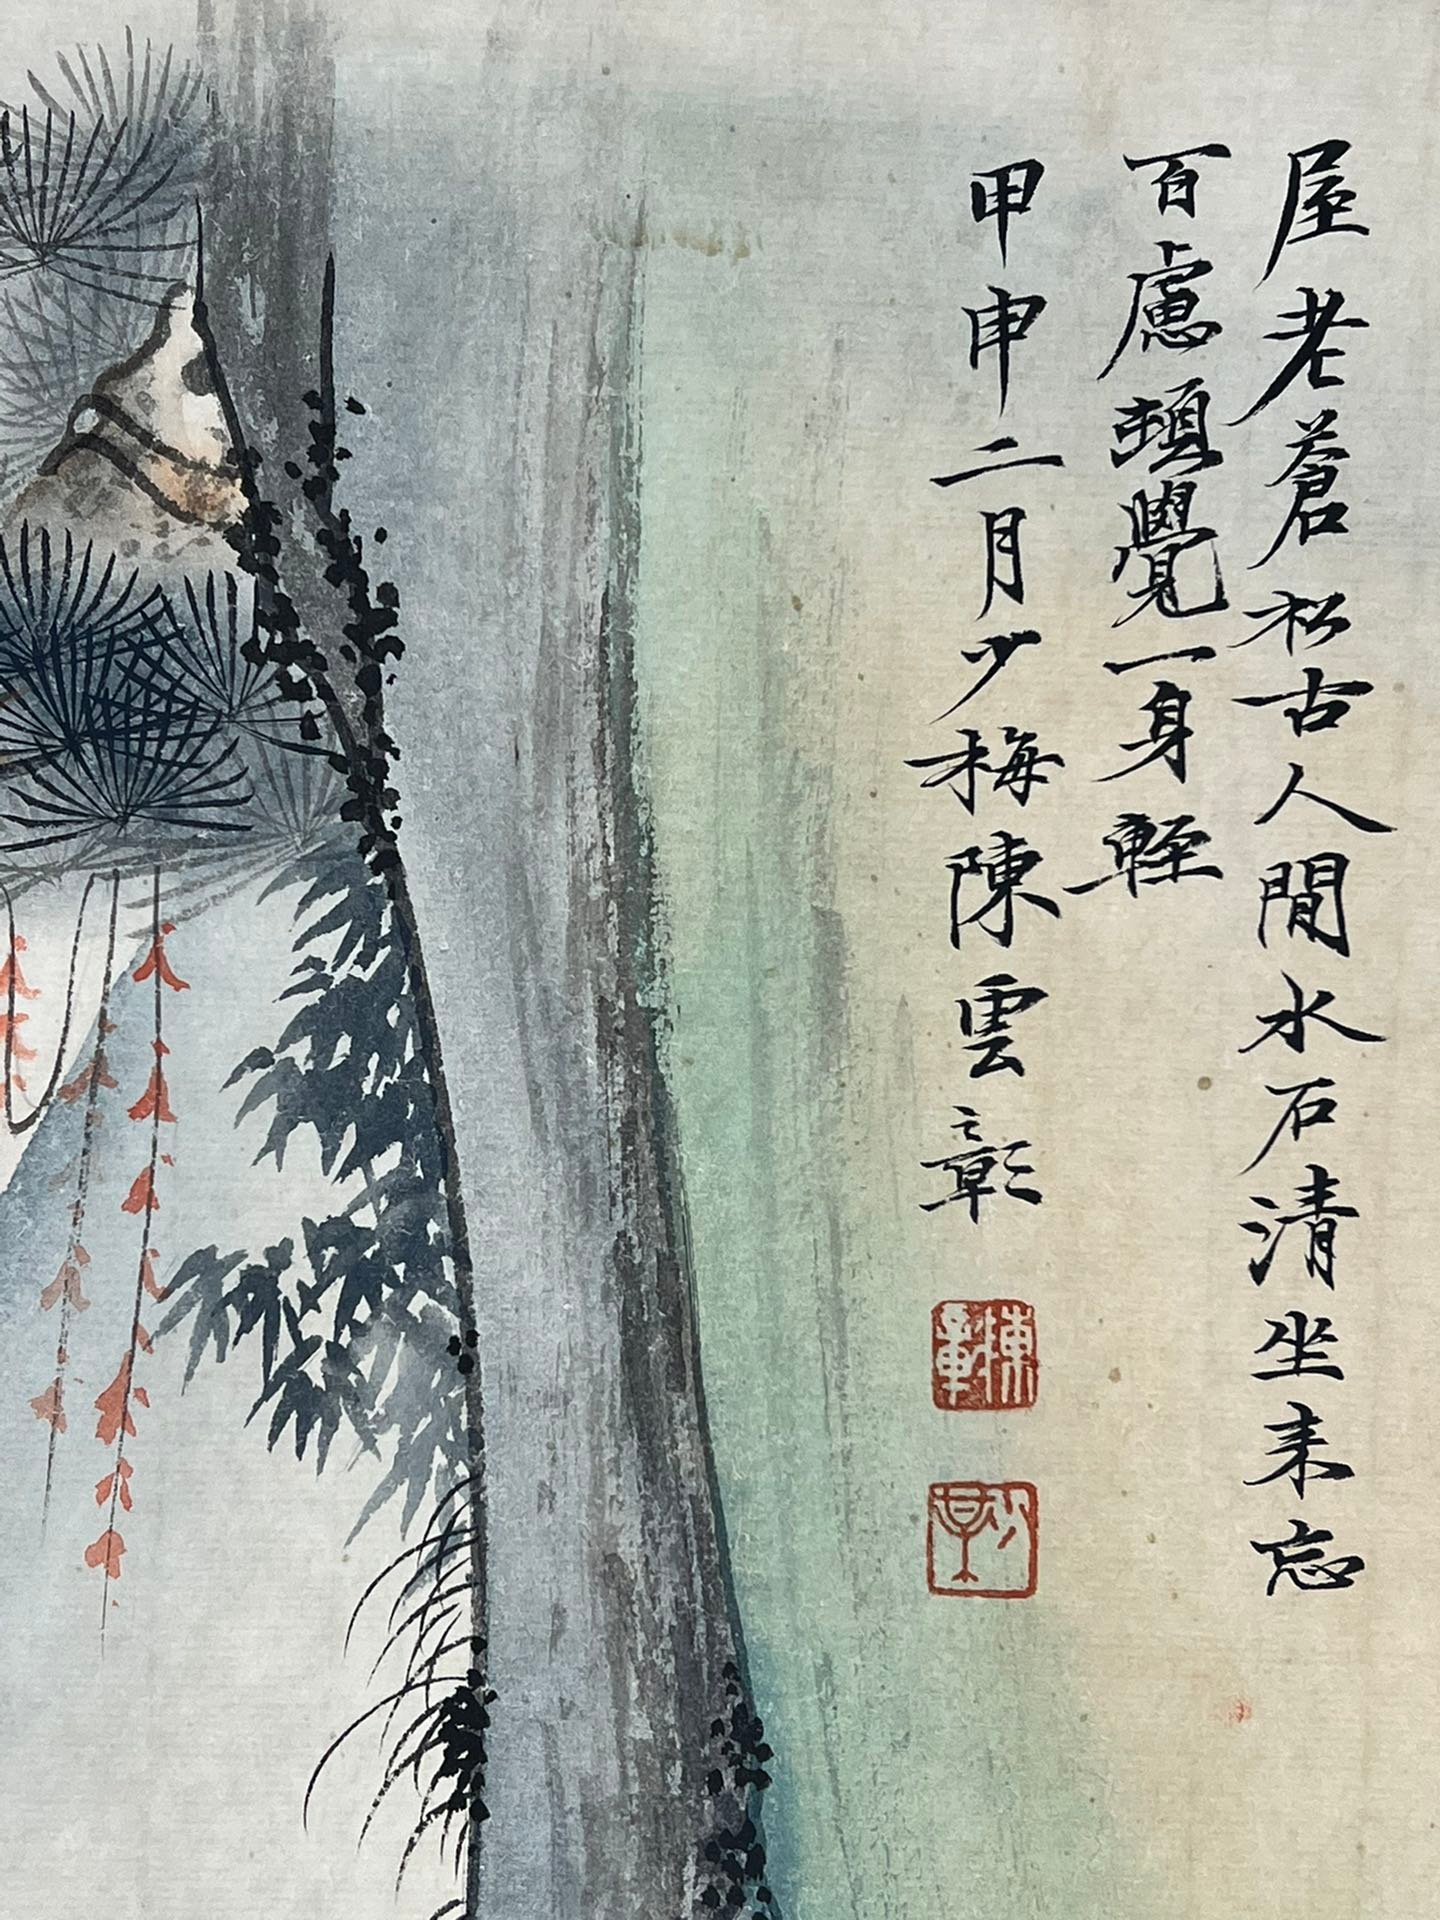 屋老蒼松古人閒水石清坐来忘
百慮頓覺一身輕
甲申二月少梅陳雲彰
陳
彰
少